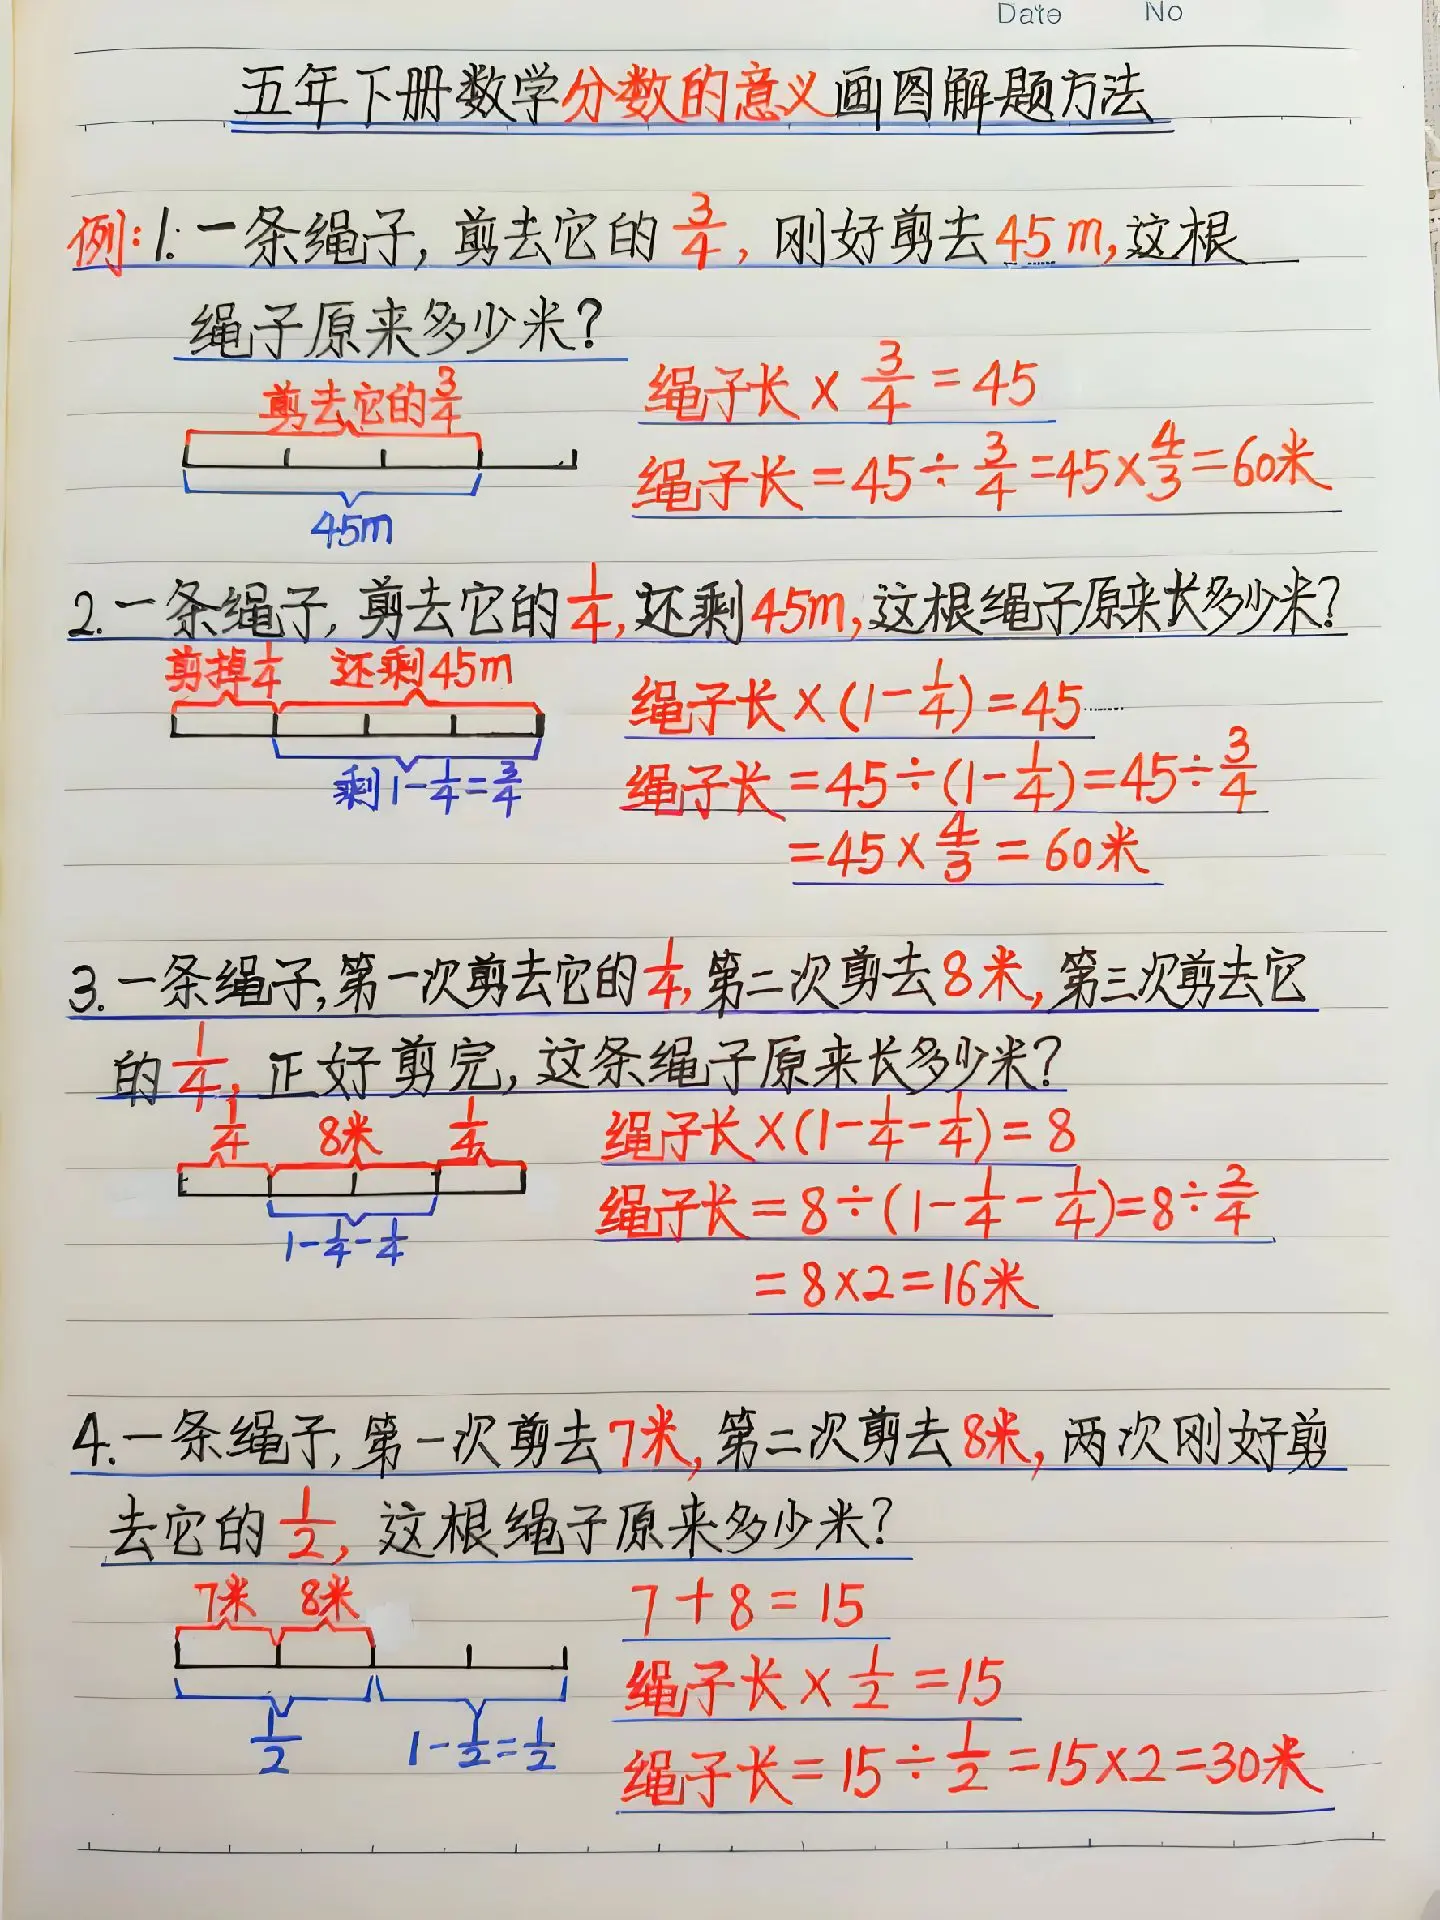 Date No
五年下册数学分数的意义画图解题方法
例:1.一条绳子,剪去它的3/4,刚好剪去45m,这根
绳子原来多少米?
剪去它的3/4
45m
绳子长×3/4=45
绳子长=45÷3/4=45×4/3=60米
2.一条绳子,剪去它的1/4,还剩45m,这根绳子原来长多少米?
剪掉1/4 还剩45m
剩1-1/4=3/4
绳子长×(1-1/4)=45
绳子长=45÷(1-1/4)=45÷3/4
=45×4/3=60米
3.一条绳子,第一次剪去它的1/4,第二次剪去8米,第三次剪去它
的1/4,正好剪完,这条绳子原来长多少米?
1/4 8米 1/4
1-1/4-1/4
绳子长×(1-1/4-1/4)=8
绳子长=8÷(1-1/4-1/4)=8÷2/4
=8×2=16米
4.一条绳子,第一次剪去7米,第二次剪去8米,两次刚好剪
去它的1/2,这根绳子原来多少米?
7米 8米
1/2 1-1/2=1/2
7+8=15
绳子长×1/2=15
绳子长=15÷1/2=15×2=30米